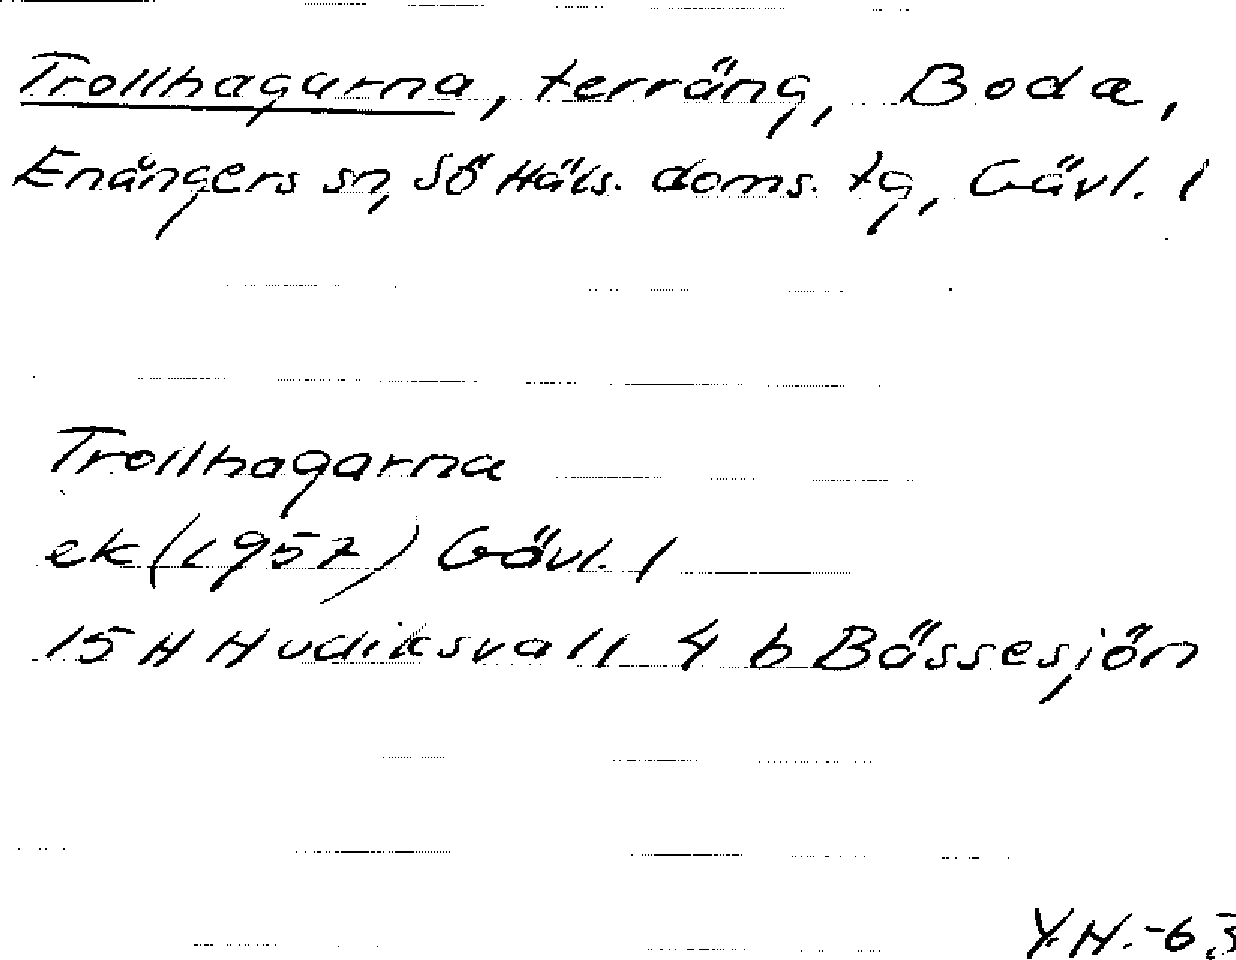 Trollhagarna, terräng, Boda,
Enångers sn, SÖ Häls. doms. tg, Gävl. l
Trollhagarna
ek (1957) Gävl. l
15 H Hudiksvall 4 b Bössesjön
Y.H.-63